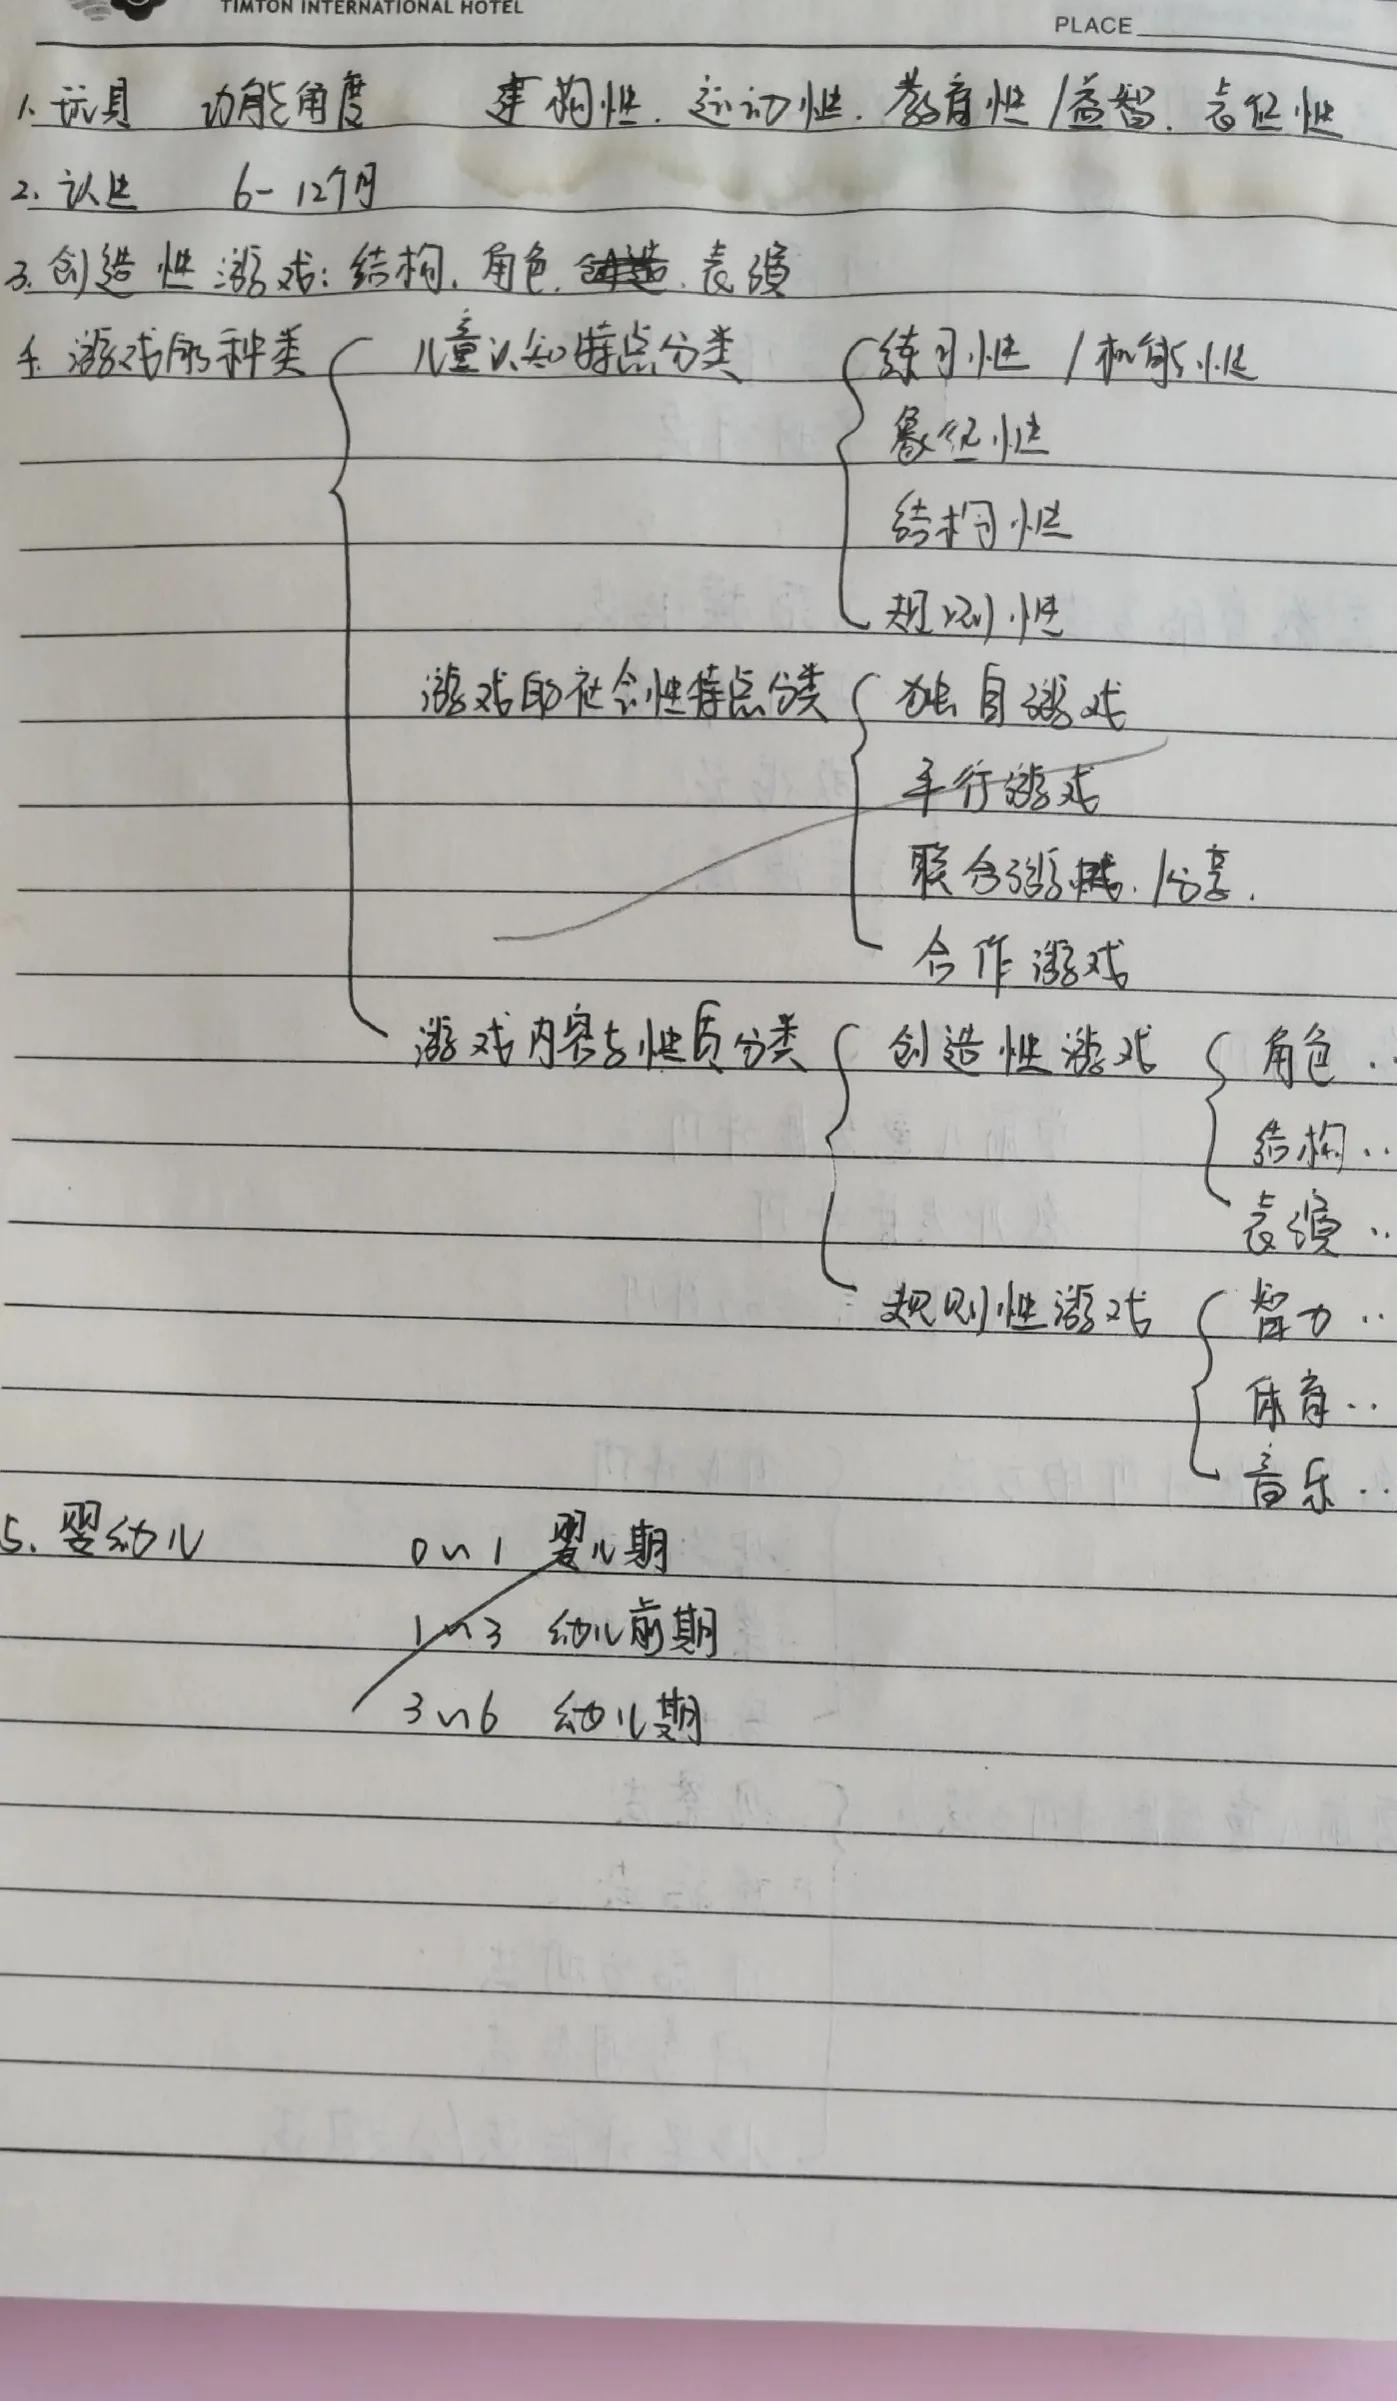 TIMTON INTERNATIONAL HOTEL
PLACE
1. 玩具 功能角度 建构性. 运动性. 教育性/益智. 表征性
2. 认生 6-12个月
3. 创造性游戏: 结构. 角色. 表演
4. 游戏的种类 儿童认知特点分类 练习性 / 机能性
象征性
结构性
规则性
游戏的社会性特点分类 独自游戏
平行游戏
联合游戏. /分享.
合作游戏
游戏内容与性质分类 创造性游戏 角色..
结构..
表演..
规则性游戏 智力..
体育..
音乐..
5. 婴幼儿 0~1 婴儿期
1~3 幼儿前期
3~6 幼儿期